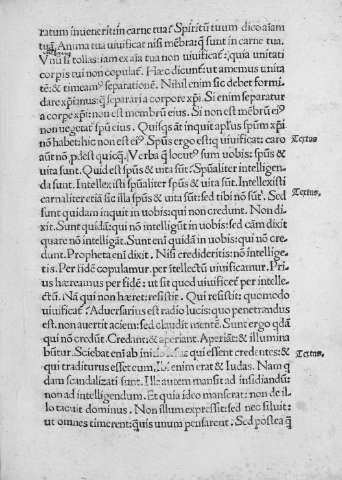 ratum inueneritĩ in carne tua? Spiritũ tuum dico aĩam
tuã. Anima tua uiuificat nisi mẽbra: q̃ sunt in carne tua.
Vnũ si tollas: iam ex aĩa tua non uiuificat͛: quia unitati
corpis tui non copulat͛. Hæc dicunt͛: ut amemus unita
tẽ: & timeamꝰ separationẽ. Nihil enim sic debet formi-
dare xp̃ianus: q̃ separari a corpore xp̃i. Si enim separatur
a corpe xp̃i: non est membrũ eius. Si non est mẽbrũ eiꝰ
non uegetat͛ spũ eius. Quisq̃s aũt inquit apl̃us spũm xp̃i
nõ habet: hic non est eiꝰ. Spũs ergo est q̃ uiuificat: caro
aũt nõ p̱dest quicq̃. Verba q̃ locutꝰ sum uobis: spũs &
uita sunt. Quid est spũs & uita sũt? Spũaliter intelligen-
da sunt. Intellexisti spũaliter spũs & uita sũt. Intellexisti
carnaliter etiã sic illa spũs & uita sũt: sed tibi nõ sũt. Sed
sunt quidam inquit in uobis: qui non credunt. Non di-
xit. Sunt quidã: qui nõ intelligũt in uobis: sed cãm dixit
quare nõ intelligãt. Sunt enĩ quidã in uobis: qui nõ cre-
dunt. Propheta enĩ dixit. Nisi credideritis: nõ intellige-
tis. Per fidẽ copulamur. per ĩtellectũ uiuificamur. Pri-
us hæreamus per fidẽ: ut sit quod uiuificet͛ per intelle-
ctũ. Nã qui non hæret: resistit. Qui resistit: quomodo
uiuificat͛? Aduersarius est radio lucis: quo penetrandus
est. non auertit aciem: sed claudit mentẽ. Sunt ergo q̃dã
qui nõ credũt. Credant: & aperiant. Aperiãt: & illumina
bũtur. Sciebat enĩ ab initio Iesus qui essent credentes: &
quis traditurus esset eum. Ibi enim erat & Iudas. Nam q̃
dam scandalizati sunt. Ille autem mansit ad insidiandũ:
non ad intelligendum. Et quia ideo manserat: non de il-
lo tacuit dominus. Non illum expressit: sed nec siluit:
ut omnes timerent: q̃uis unum pensarent. Sed postea q̃
Textus
Textus.
Textus.